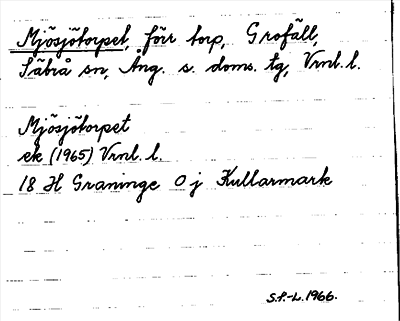 Mjösjötorpet, förr torp, Grofäll,
Säbrå sn, Ång. s. doms. tg, Vrnl. l.
Mjösjötorpet
ek (1965) Vrnl. l.
18 H Graninge 0 j Kullarmark
S.P.-L. 1966.